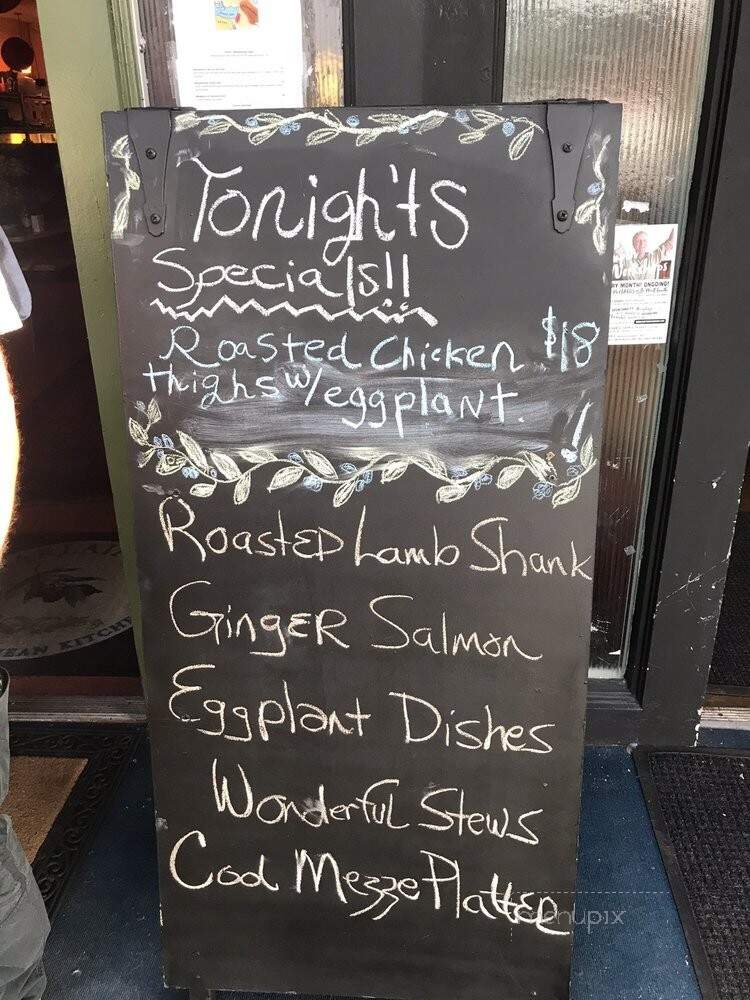 Tonight's
Specials!!
Roasted Chicken $18
thighs w/ eggplant.
Roasted Lamb Shank
Ginger Salmon
Eggplant Dishes
Wonderful Stews
Cool Mezze Platter
RY MONTH! ONGOING!
EAN KITCH
menupix